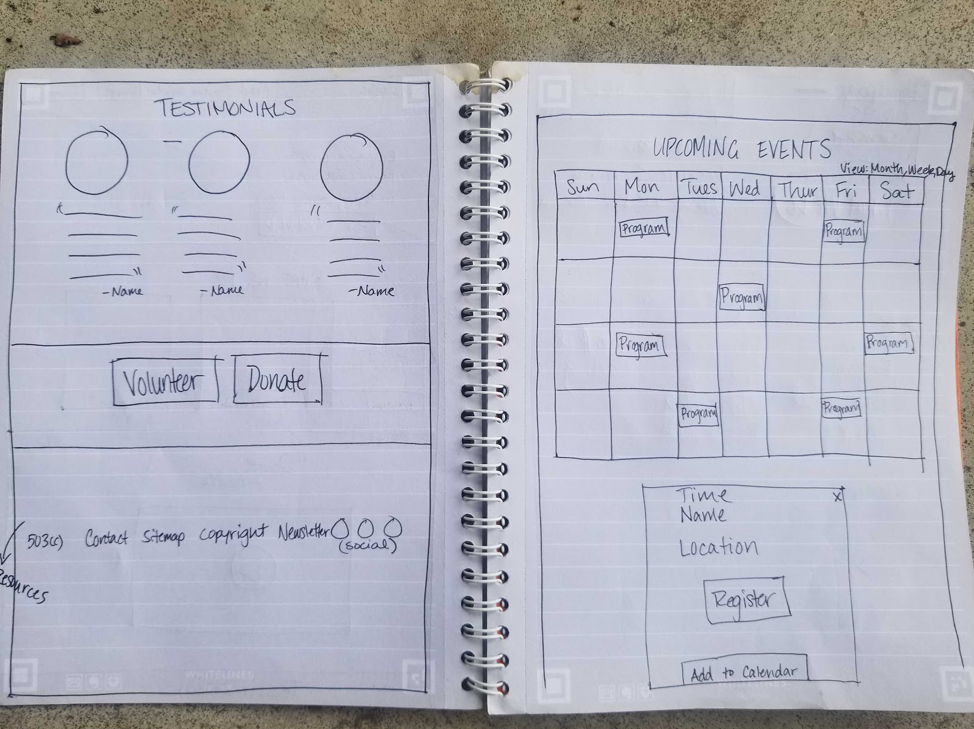 TESTIMONIALS
" "
" "
" "
-Name -Name -Name
Volunteer Donate
503(c) Contact Sitemap copyright Newsletter
(social)
WHITELINES
UPCOMING EVENTS
View: Month, Week, Day
Sun Mon Tues Wed Thur Fri Sat
Program Program
Program
Program Program
Program Program
Time x
Name
Location
Register
Add to Calendar